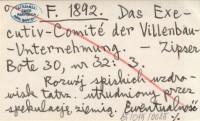 F. 1892. Das Exe-
cutiv-Comité der Villenbau-
-Unternehmung. - Zipser
Bote 30, nr 32: 3.
Rozwój spiskich uzdro-
wisk tatrz. utrudniony przez
spekulację ziemią. Ewentualność